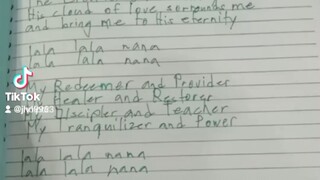 His cloud of love surrounds me
and bring me to His eternity
lala lala nana
lala lala nana
My Redeemer and Provider
Healer and Restorer
My Discipler and Teacher
My Tranquilizer and Power
lala lala nana
lala lala nana
TikTok